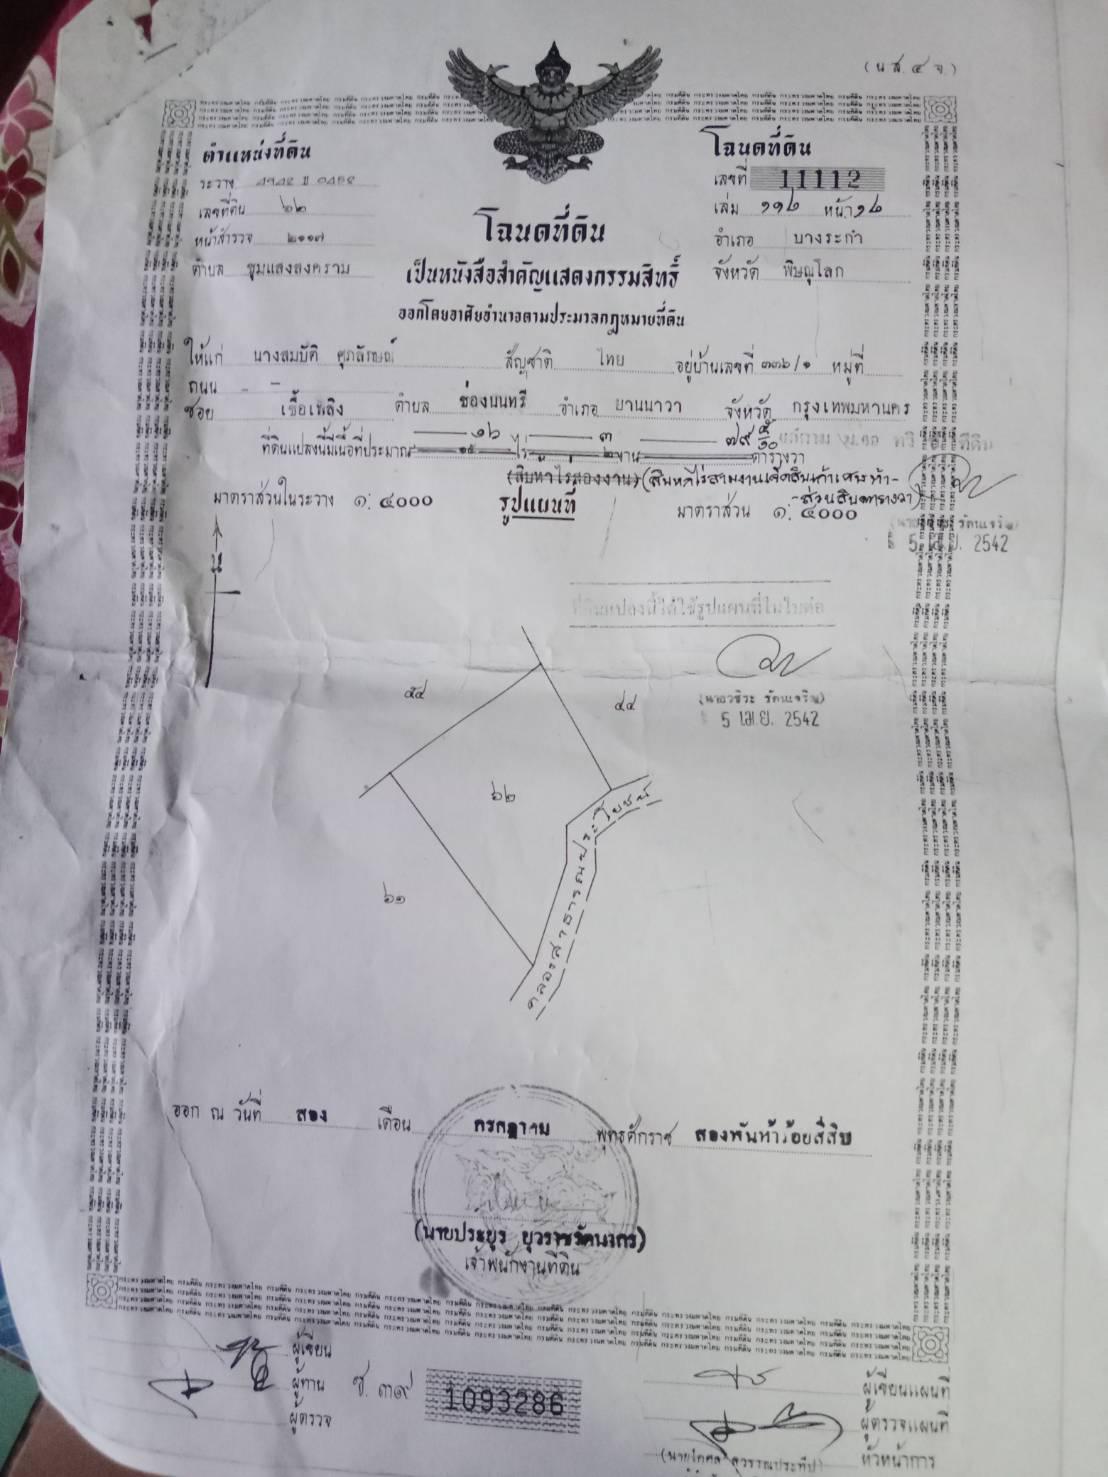 (น.ส. ๔ จ.)
ตำแหน่งที่ดิน
ระวาง
เลขที่ดิน ๖๒
หน้าสำรวจ ๒๑๑๗
ตำบล ชุมแสงสงคราม
โฉนดที่ดิน
เลขที่ 11112
เล่ม ๑๑๒ หน้า ๑๒
อำเภอ บางระกำ
จังหวัด พิษณุโลก
โฉนดที่ดิน
เป็นหนังสือสำคัญแสดงกรรมสิทธิ์
ออกโดยอาศัยอำนาจตามประมวลกฎหมายที่ดิน
ให้แก่ นางสมบัติ ศุภลักษณ์ สัญชาติ ไทย อยู่บ้านเลขที่ ๓๓๖/๑ หมู่ที่
ถนน - -
ซอย เชื้อเพลิง ตำบล ช่องนนทรี อำเภอ ยานนาวา จังหวัด กรุงเทพมหานคร
๑๖ ๓ ๗๙ ๕/๑๐
ที่ดินแปลงนี้มีเนื้อที่ประมาณ ๑๕ ไร่ ๒ งาน ตารางวา
(สิบห้าไร่สองงาน) (สิบหกไร่สามงานเจ็ดสิบเก้าเศษห้า-
-ส่วนสิบตารางวา)
มาตราส่วนในระวาง ๑: ๔๐๐๐ รูปแผนที่ มาตราส่วน ๑: ๔๐๐๐
5 เม.ย. 2542
น
ที่ดินแปลงนี้ได้ใช้รูปแผนที่ในใบต่อ
(นายวชิระ รัตนเจริญ)
5 เม.ย. 2542
๕๔
๔๔
๖๒
๖๑
คลองสาธารณประโยชน์
ออก ณ วันที่ สอง เดือน กรกฎาคม พุทธศักราช สองพันห้าร้อยสี่สิบ
(นายประยูร ยุวราชรัตนากร)
เจ้าพนักงานที่ดิน
ผู้เขียน
ผู้ทาน
ผู้ตรวจ
ช. ๓๙
1093286
ผู้เขียนแผนที่
ผู้ตรวจแผนที่
หัวหน้าการ